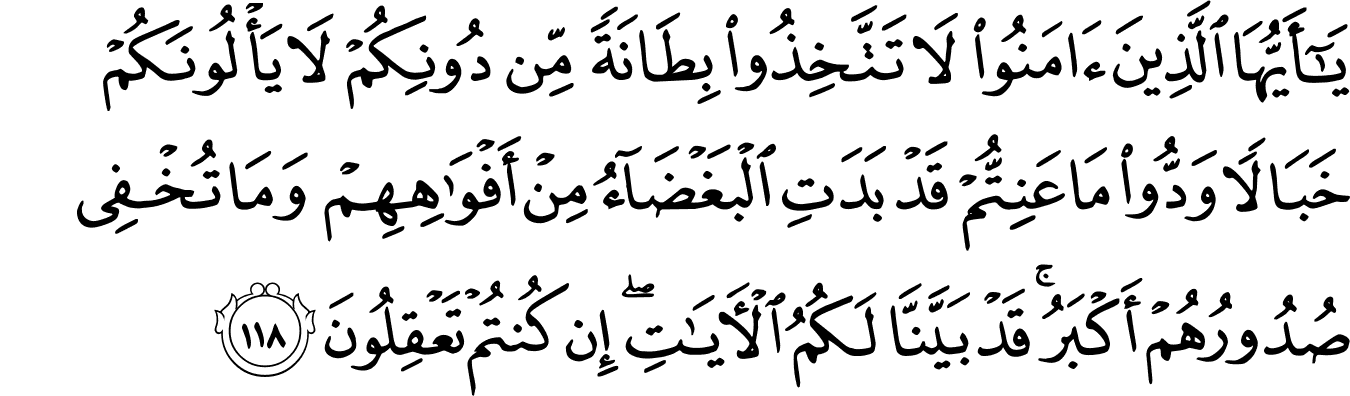 يَـٰٓأَيُّهَا ٱلَّذِينَ ءَامَنُوا۟ لَا تَتَّخِذُوا۟ بِطَانَةً مِّن دُونِكُمْ لَا يَأْلُونَكُمْ
خَبَالًا وَدُّوا۟ مَا عَنِتُّمْ قَدْ بَدَتِ ٱلْبَغْضَآءُ مِنْ أَفْوَٰهِهِمْ وَمَا تُخْفِى
صُدُورُهُمْ أَكْبَرُ ۚ قَدْ بَيَّنَّا لَكُمُ ٱلْـَٔايَـٰتِ ۖ إِن كُنتُمْ تَعْقِلُونَ ١١٨